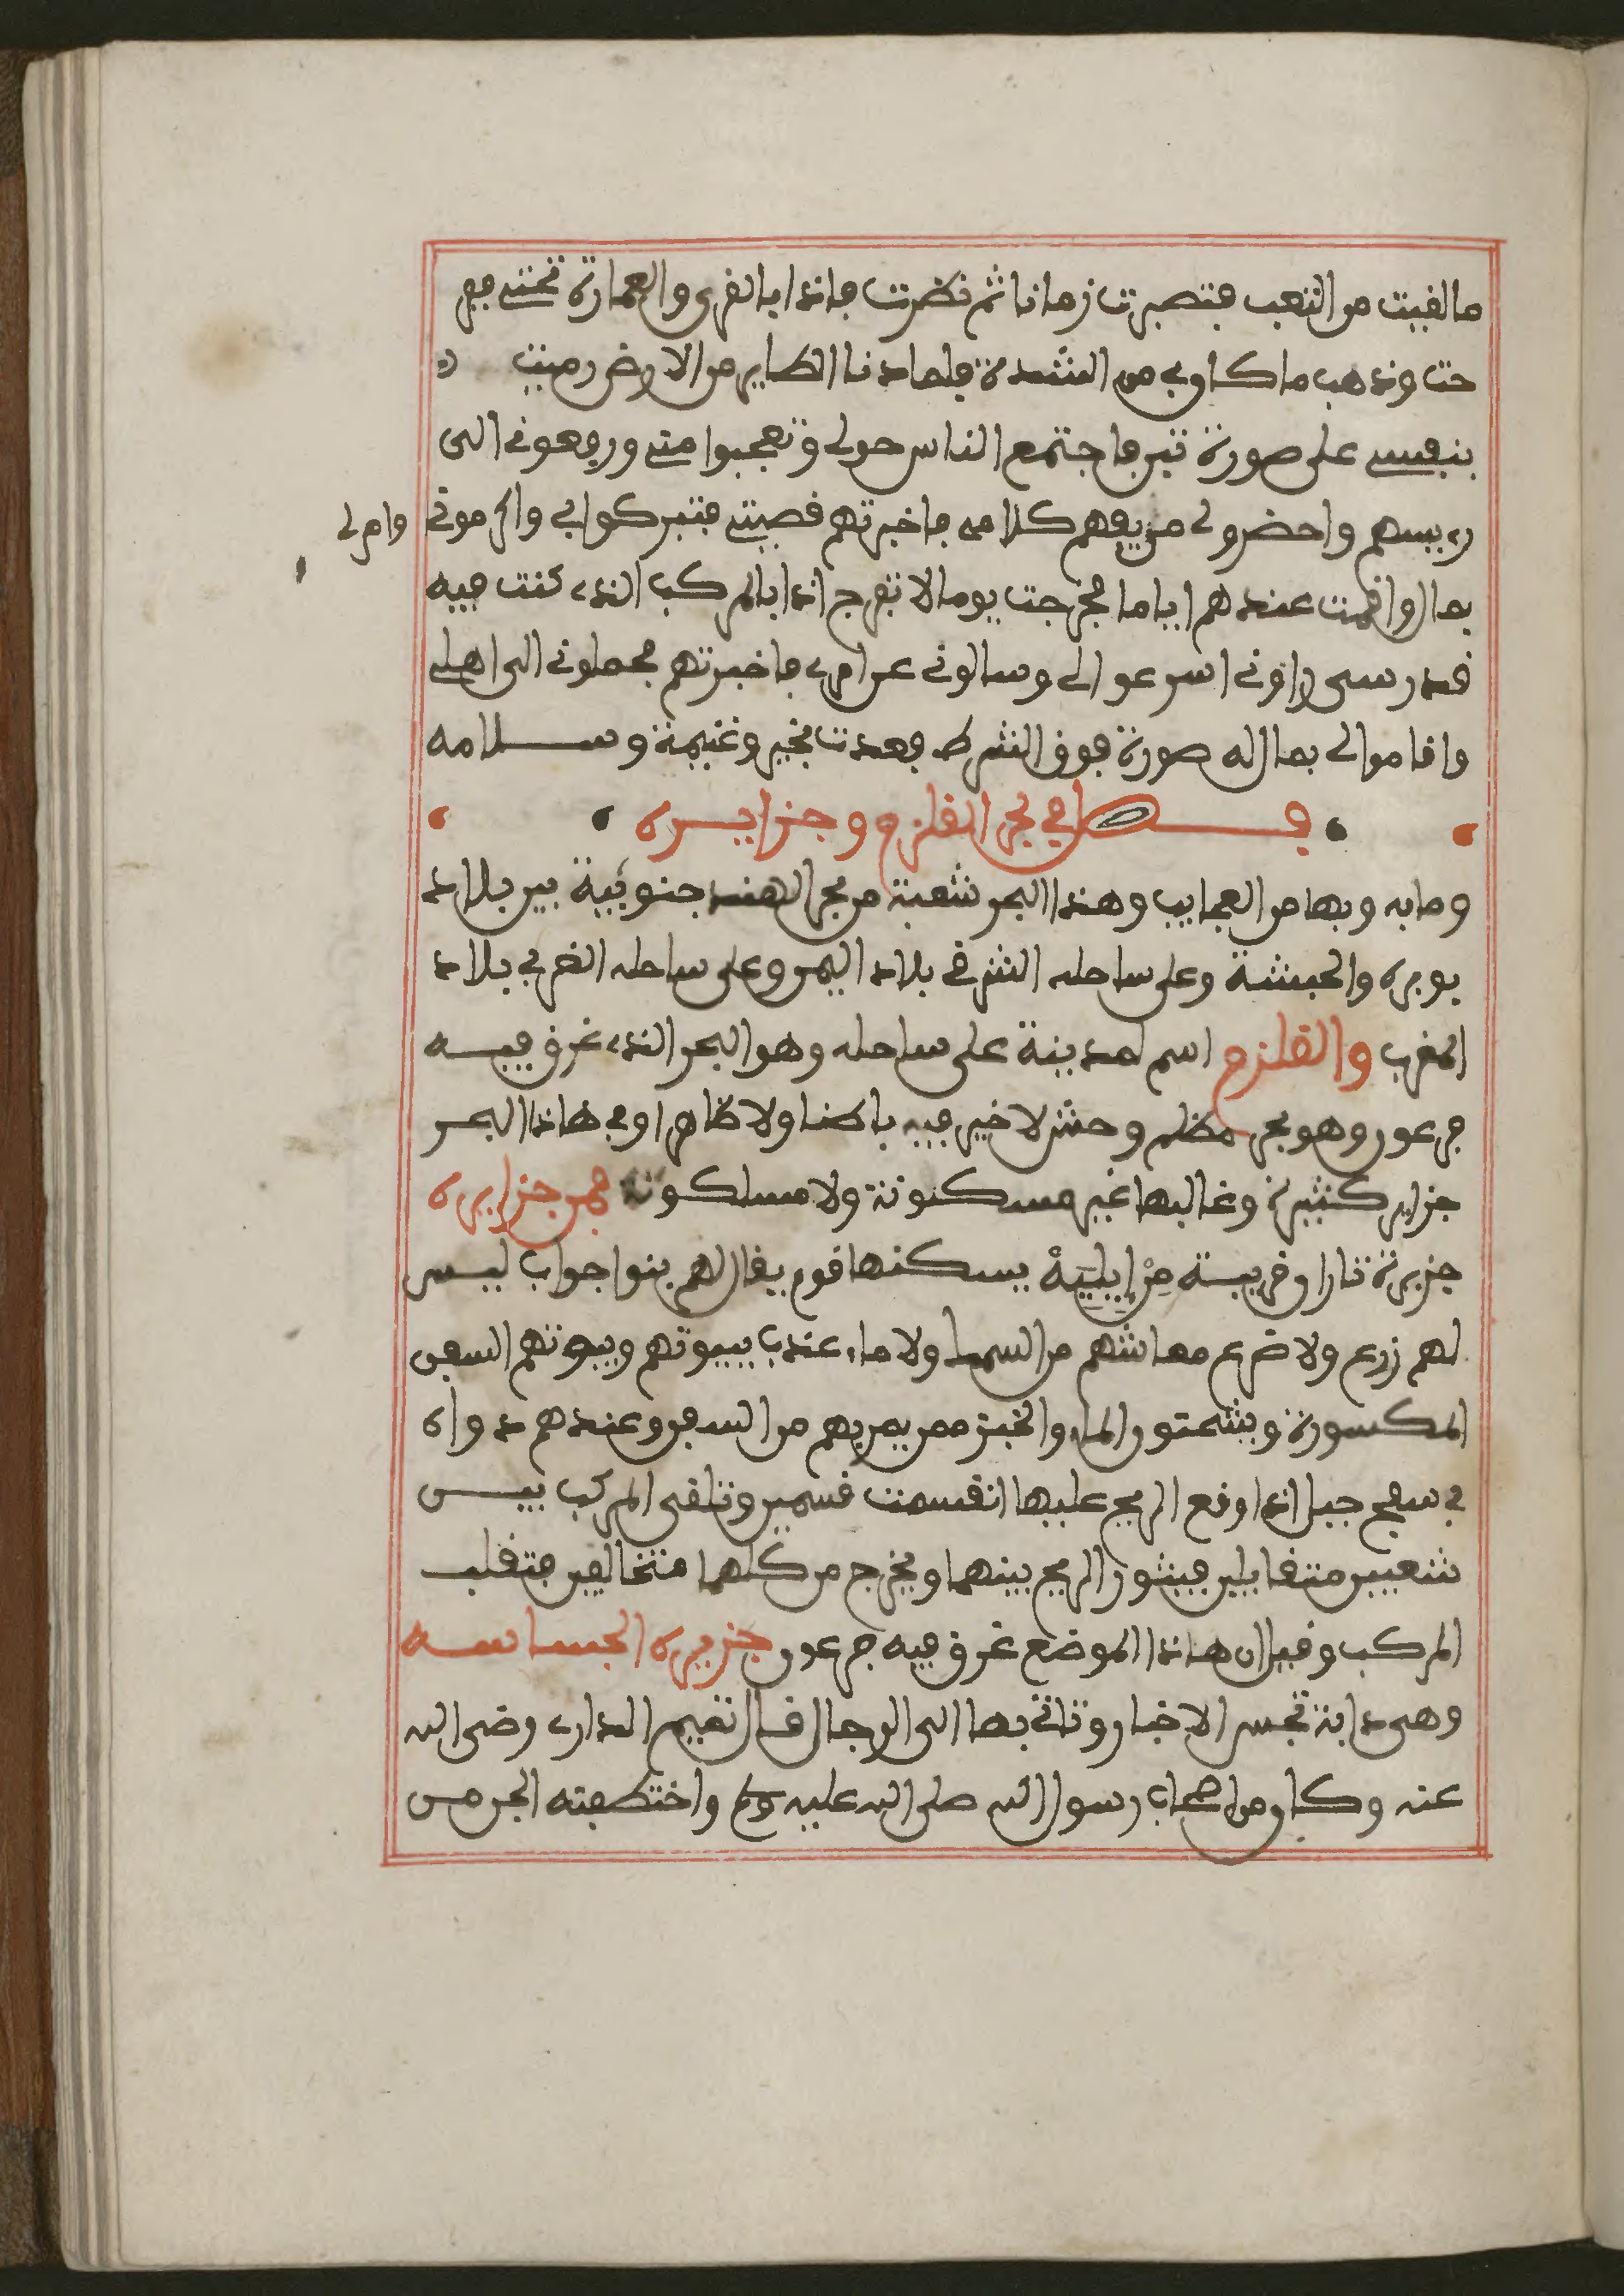 ما لقيت من التعب فتصبرت زمانا ثم نظرت فاذا بالقرى والعمارة تحتي ففر
حت وذهب ما كان بي من الشدة فلما دنا الطاير من الارض رميت
بنفسي على صورة تبن فاجتمع الناس حولي وتعجبوا مني ورفعوني الى
رييسهم واحضرولي من يفهم كلامي فاخبرتهم قصيتي فتبركوا بي واكرموني وامرلي
بمال واقمت عندهم اياما فخرجت يوما لاتفرج اذا بالمركب الذي كنت فيه
قد رسى راوني اسرعوا الي وسالوني عن امري فاخبرتهم فحملوني الى اهلي
واقاموا لي بمال له صورة فوق الشرط فعدت بخير وغنيمة وسلامه
فصل في بحر القلزم وجزايره
وما به وبها من العجايب وهذا البحر شعبة من بحر الهند جنوبية بين بلاد
بوبره والحبشة وعلى ساحله الشرقي بلاد اليمن وعلى ساحله الغربي بلاد
المغرب والقلزم اسم لمدينة على ساحله وهو البحر الذي غرق فيه
فرعون وهو بحر مظلم وحش لا خير فيه باطنا ولا ظاهرا وفي هاذا البحر
جزاير كثيرة وغالبها غير مسكونة ولا مسلكونة فمن جزايره
جزيرة تاران قريبة من ايلية يسكنها قوم يقال لهم بنوا جواب ليس
لهم زرع ولا ضرع معاشهم من السما ولا ماء عندب بيبوتهم وبيوتهم السفن
المكسورة ويشحتون الماء والخبز ممن يمر بهم من السفن وعندهم دواه
في سفح جبل اذا وقع الريح عليها انقسمت قسمين وتلقى المركب بيس
شعبين متقابلين فيشور الريح بينهما ويخرج من كلهما متخالفين فتقلب
المركب وقيل ان هاذا الموضع غرق فيه فرعون جزيره الجساسه
وهى دابة تجس الاخبار وتاتي بها الى الدجال قال تميم الداري رضى الله
عنه وكان من اصحاب رسول الله صلى الله عليه وسلم واختطفته الجن من